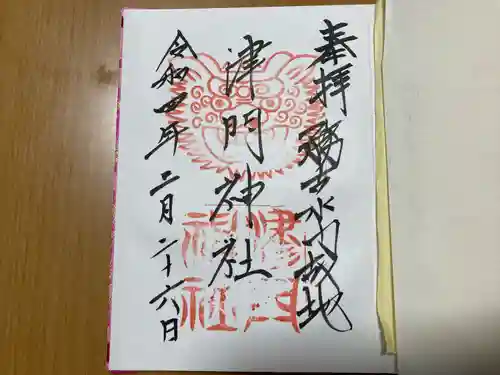 奉拝
津門神社
令和四年二月二十六日
津門
神社